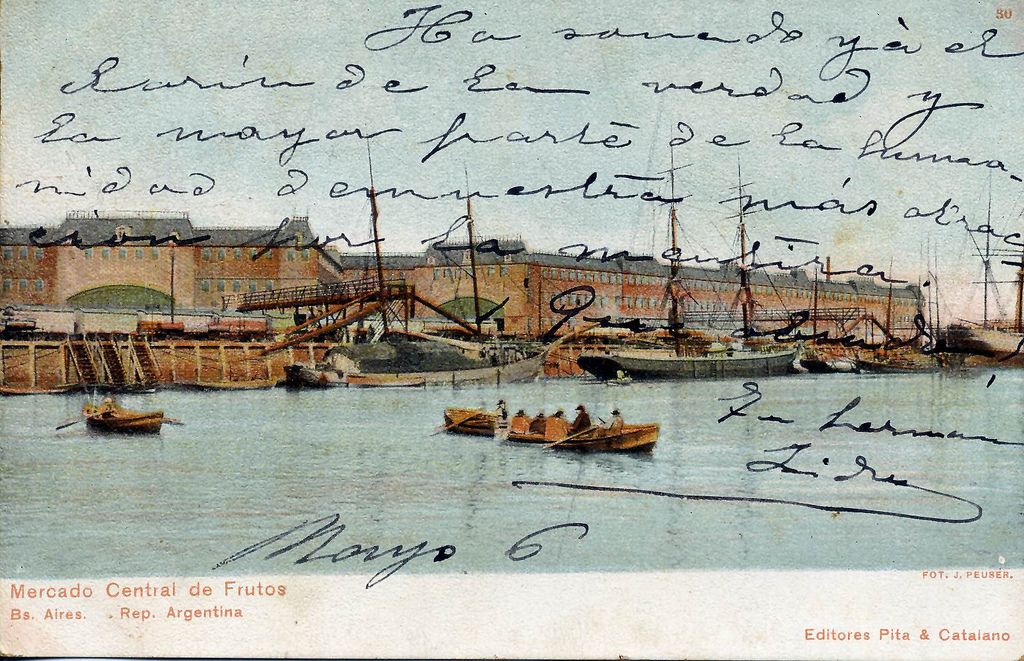 30
Ha sonado yà el
de la verdad y
la mayor parte de la huma-
nidad demuestra más atrac
ción por la mentira.
¡Que absurdo!
Tu hermán
Mayo 6
Mercado Central de Frutos
Bs. Aires. . Rep. Argentina
FOT. J. PEUSER.
Editores Pita & Catalano